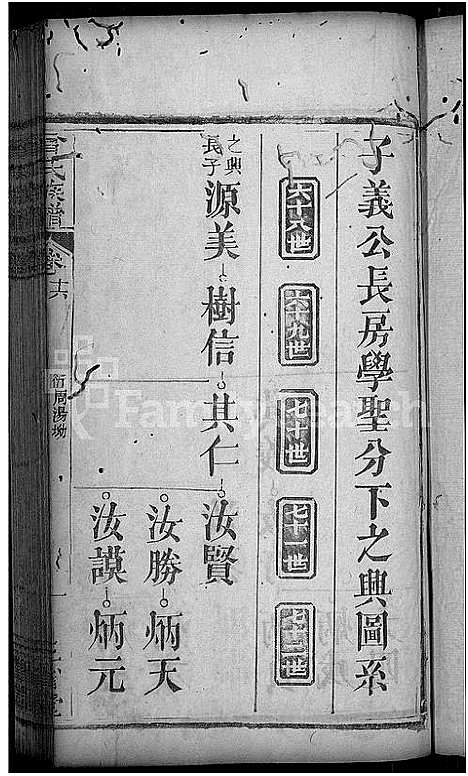 子義公長房學聖分下之興圖系
六十八世
六十九世
七十世
七十一世
七十二世
之興長子
源美 樹信 其仁 汝賢
汝勝 炳天
汝謨 炳元
曾氏族譜 卷十六 衍周湯坳
FamilySearch